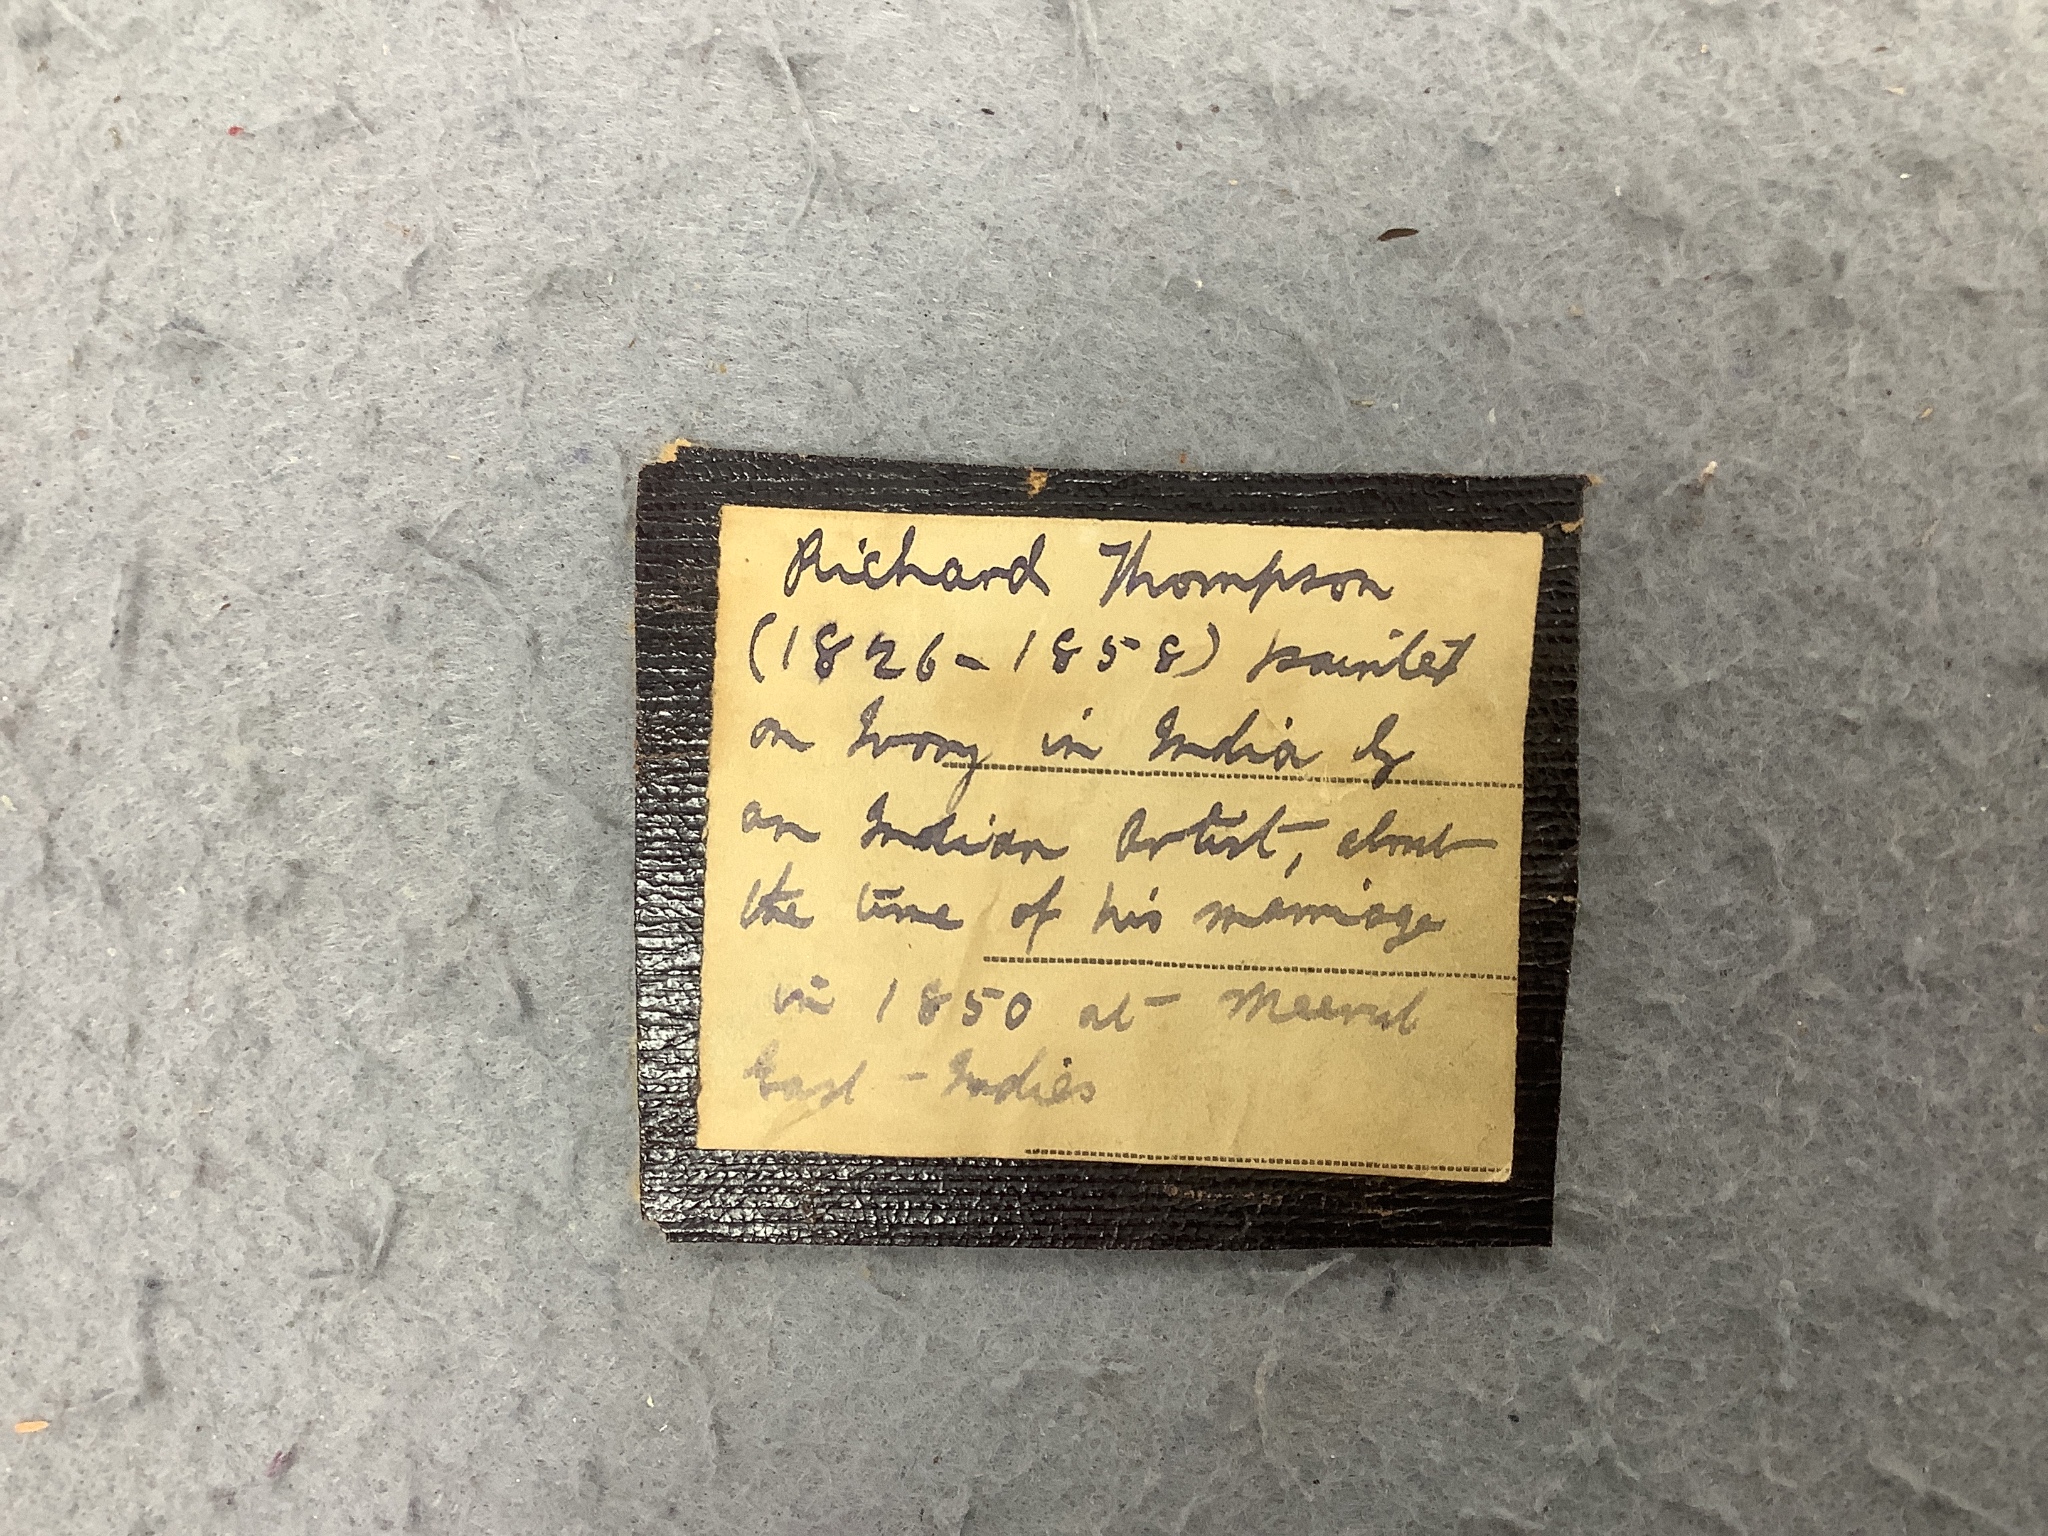 Richard Thompson
(1826-1858) painted
on Ivory in India by
an Indian Artist, about
the time of his marriage
in 1850 at Meerut
East-Indies